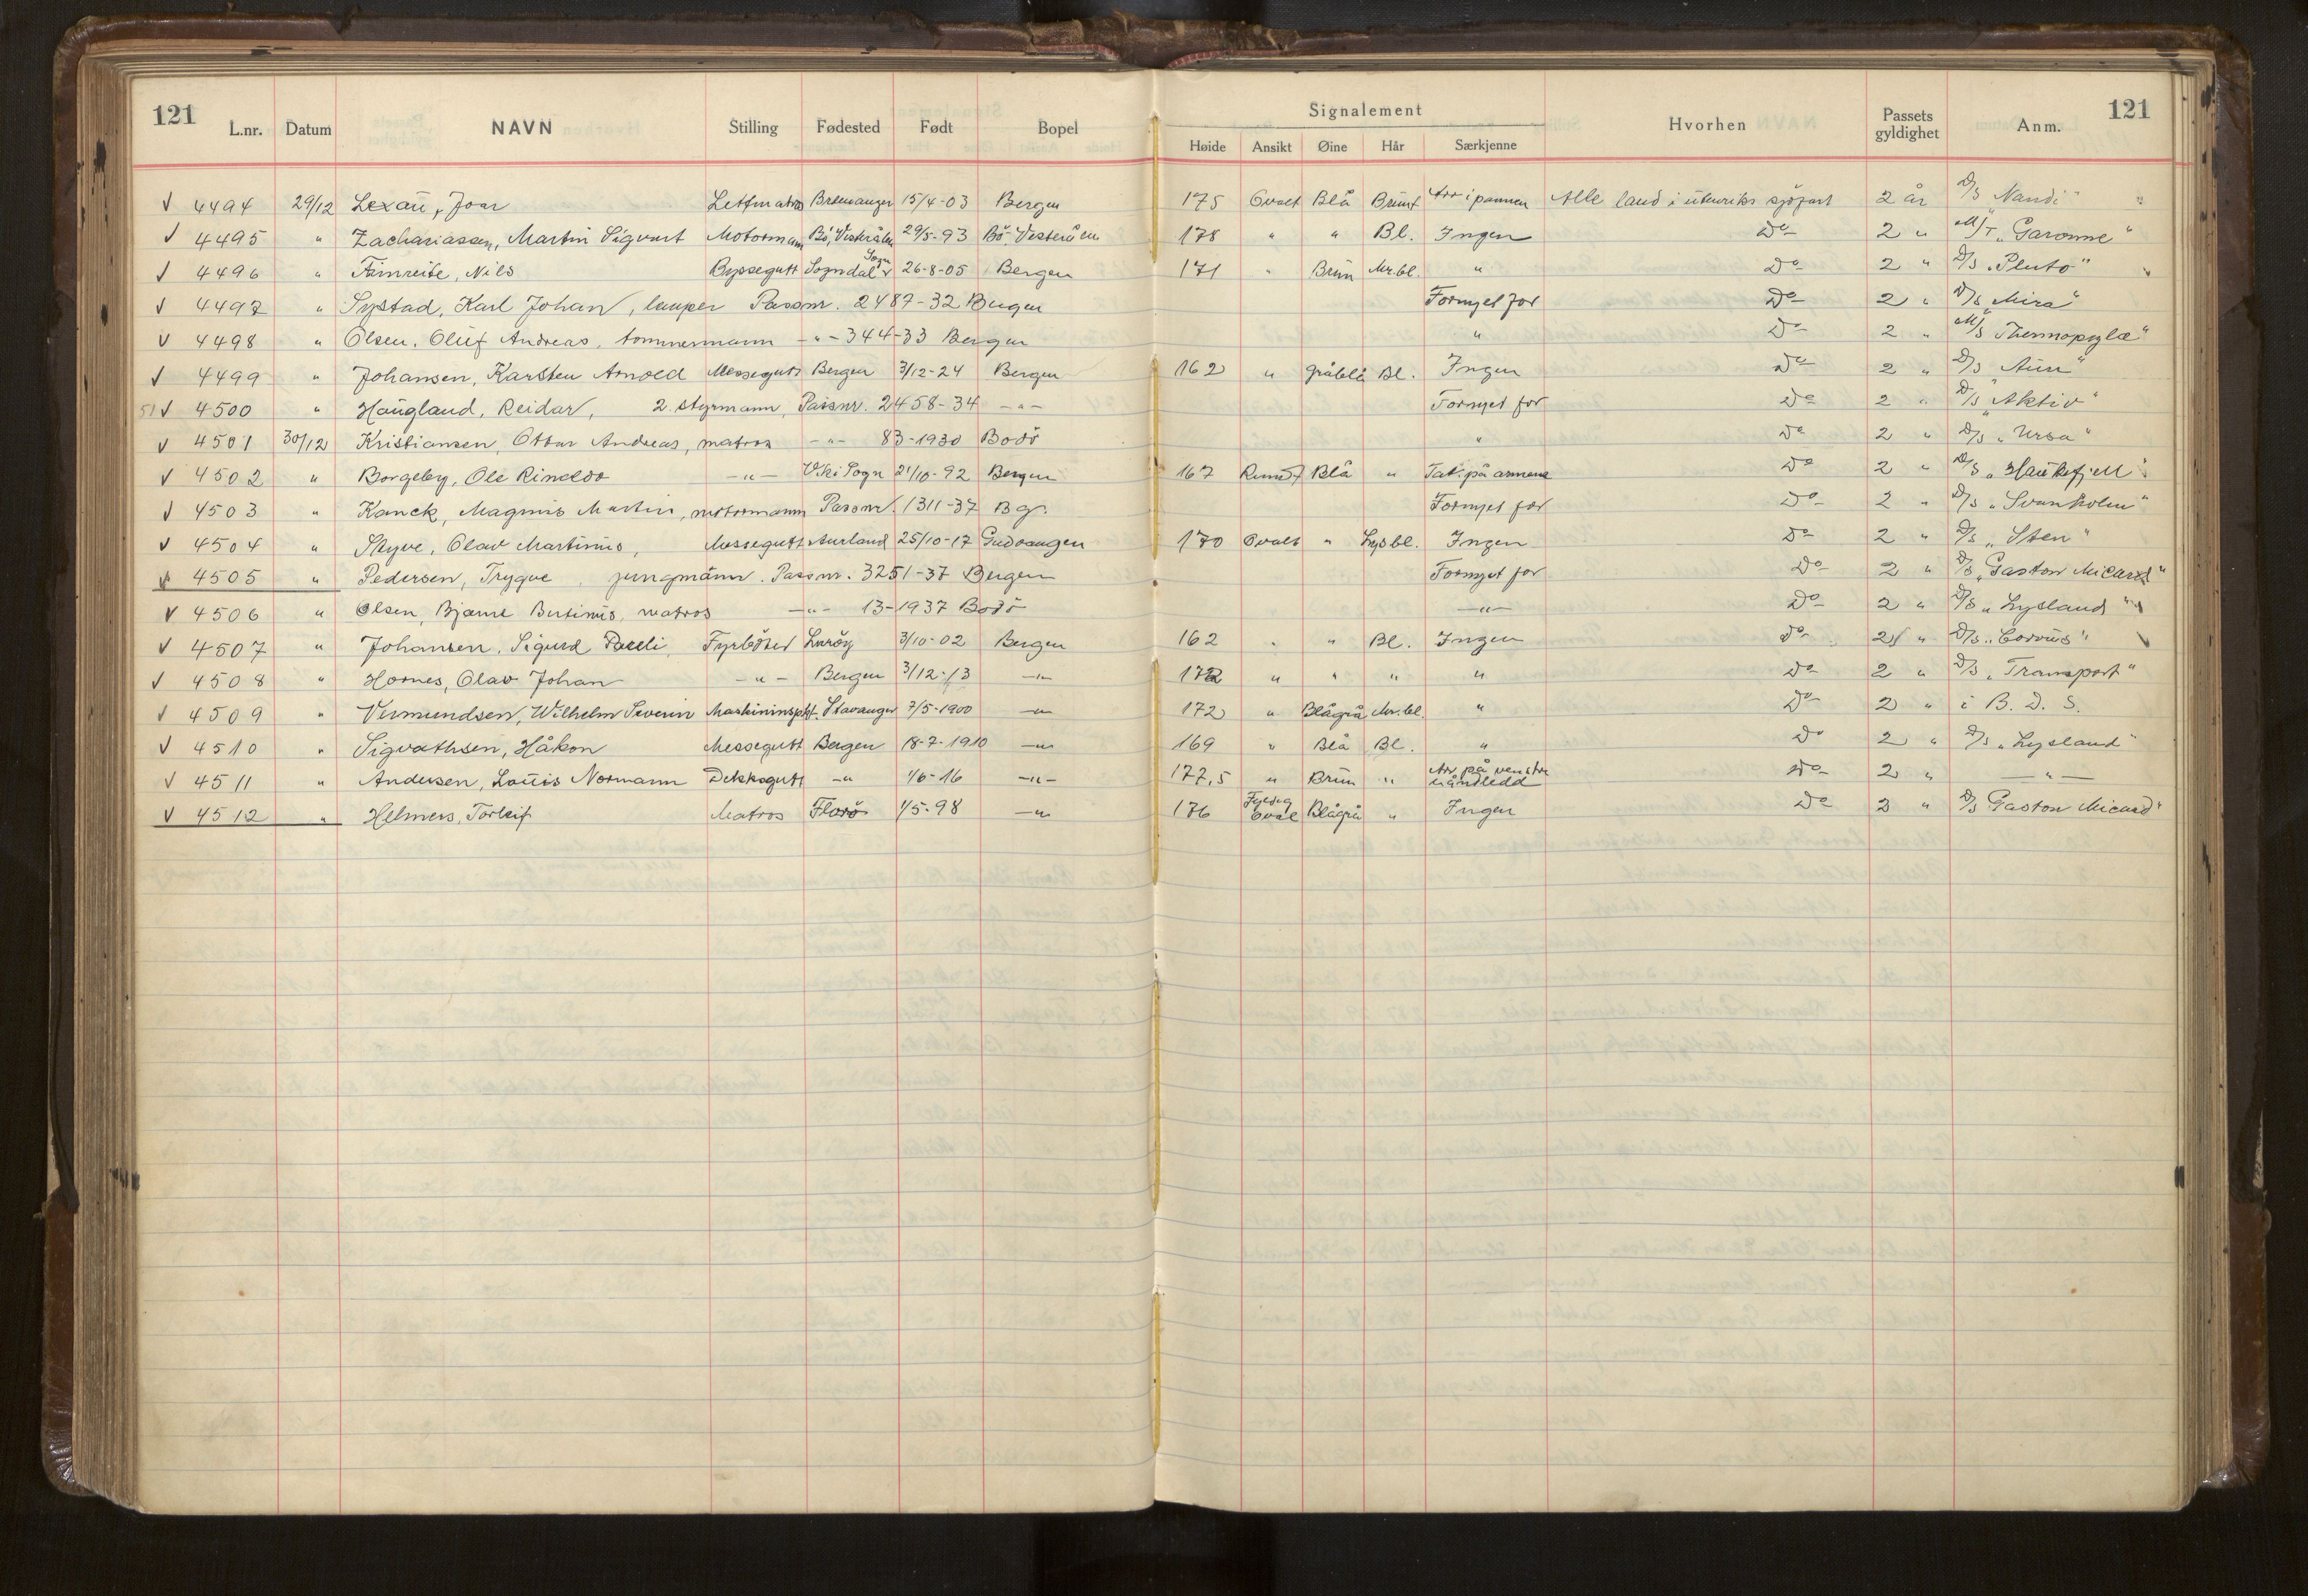 121 121
Signalement
L.nr. Datum NAVN Stilling Fødested Født Bopel Høide Ansikt Øine Hår Særkjenne Hvorhen Passets gyldighet Anm.
V 4494 29/12 Lexau, Joar Lettmatros Bremanger 15/4-03 Bergen 175 Ovalt Blå Brunt Arr i pannen Alle land i utenriks sjöfart 2 år D/S "Nandi"
V 4495 " Zachariassen, Martin Sigvart Motormann Bö, Vesterålen 29/5-93 Bö Vesterålen 178 " " Bl. Ingen Do 2 " M/T "Garonne"
V 4496 " Fimreite, Nils Byssegutt Sogndal Sogn 26-8-05 Bergen 171 " Brun Mr.bl. " Do 2 " D/S "Pluto"
V 4497 " Systad, Karl Johan, lemper Passnr. 2487-32 Bergen Fornyet for Do 2 " D/S "Mira"
V 4498 " Olsen, Oluf Andreas, tømmermann -"- 344-33 Bergen " Do 2 " M/S "Thermopylæ"
V 4499 " Johansen, Karsten Arnold Messegutt Bergen 3/12-24 Bergen 162 " gråblå Bl. Ingen Do 2 " D/S "Aun"
51 V 4500 " Haugland, Reidar, 2. styrmann, Passnr. 2458-34 -"- Fornyet for Do 2 " D/S "Aktiv"
V 4501 30/12 Kristiansen, Ottar Andreas, matros -"- 83-1930 Bodö " Do 2 " D/S "Ursa"
V 4502 " Borgeby, Ole Rinaldo -"- Vik i Sogn 21/10-92 Bergen 167 Rundt Blå " Tat. på armene Do 2 " D/S "Haukefjell"
V 4503 " Kanck, Magnus Martin, motormann Passnr. 1311-37 Bg. Fornyet for Do 2 " D/S "Svanholm"
V 4504 " Styve, Olav Martinus, Messegutt Aurland 25/10-17 Gudvangen 170 Ovalt " Lysbl. Ingen Do 2 " D/S "Sten"
V 4505 " Pedersen, Trygve, jungmann. Passnr. 3251-37 Bergen Fornyet for Do 2 " D/S "Gaston Micard"
V 4506 " Olsen, Bjarne Bertinus, matros -"- 13-1937 Bodö -"- Do 2 " D/S "Lysland"
V 4507 " Johansen, Sigurd Fyrböter Luröy 3/10-02 Bergen 162 " " Bl. Ingen Do 2 " D/S "Corvus"
V 4508 " Hornes, Olav Johan -"- Bergen 3/12-13 -"- 172 " " " " Do 2 " D/S "Transport"
V 4509 " Vermundsen, Wilhelm Severin Maskininspkt. Stavanger 7/5-1900 -"- 172 " Blågrå Mr.bl. " Do 2 " i B. D. S.
V 4510 " Sigvathsen, Håkon Messegutt Bergen 18-7-1910 -"- 169 " Blå Bl. " Do 2 " D/S "Lysland"
V 4511 " Andersen, Louis Normann Dekksgutt -"- 1/6-16 -"- 177,5 " Brun " Arr på venstre håndledd Do 2 " -"-
V 4512 " Helmers, Torleif Matros Florö 1/5-98 -"- 176 Fyldig Oval Blågrå " Ingen Do 2 " D/S "Gaston Micard"